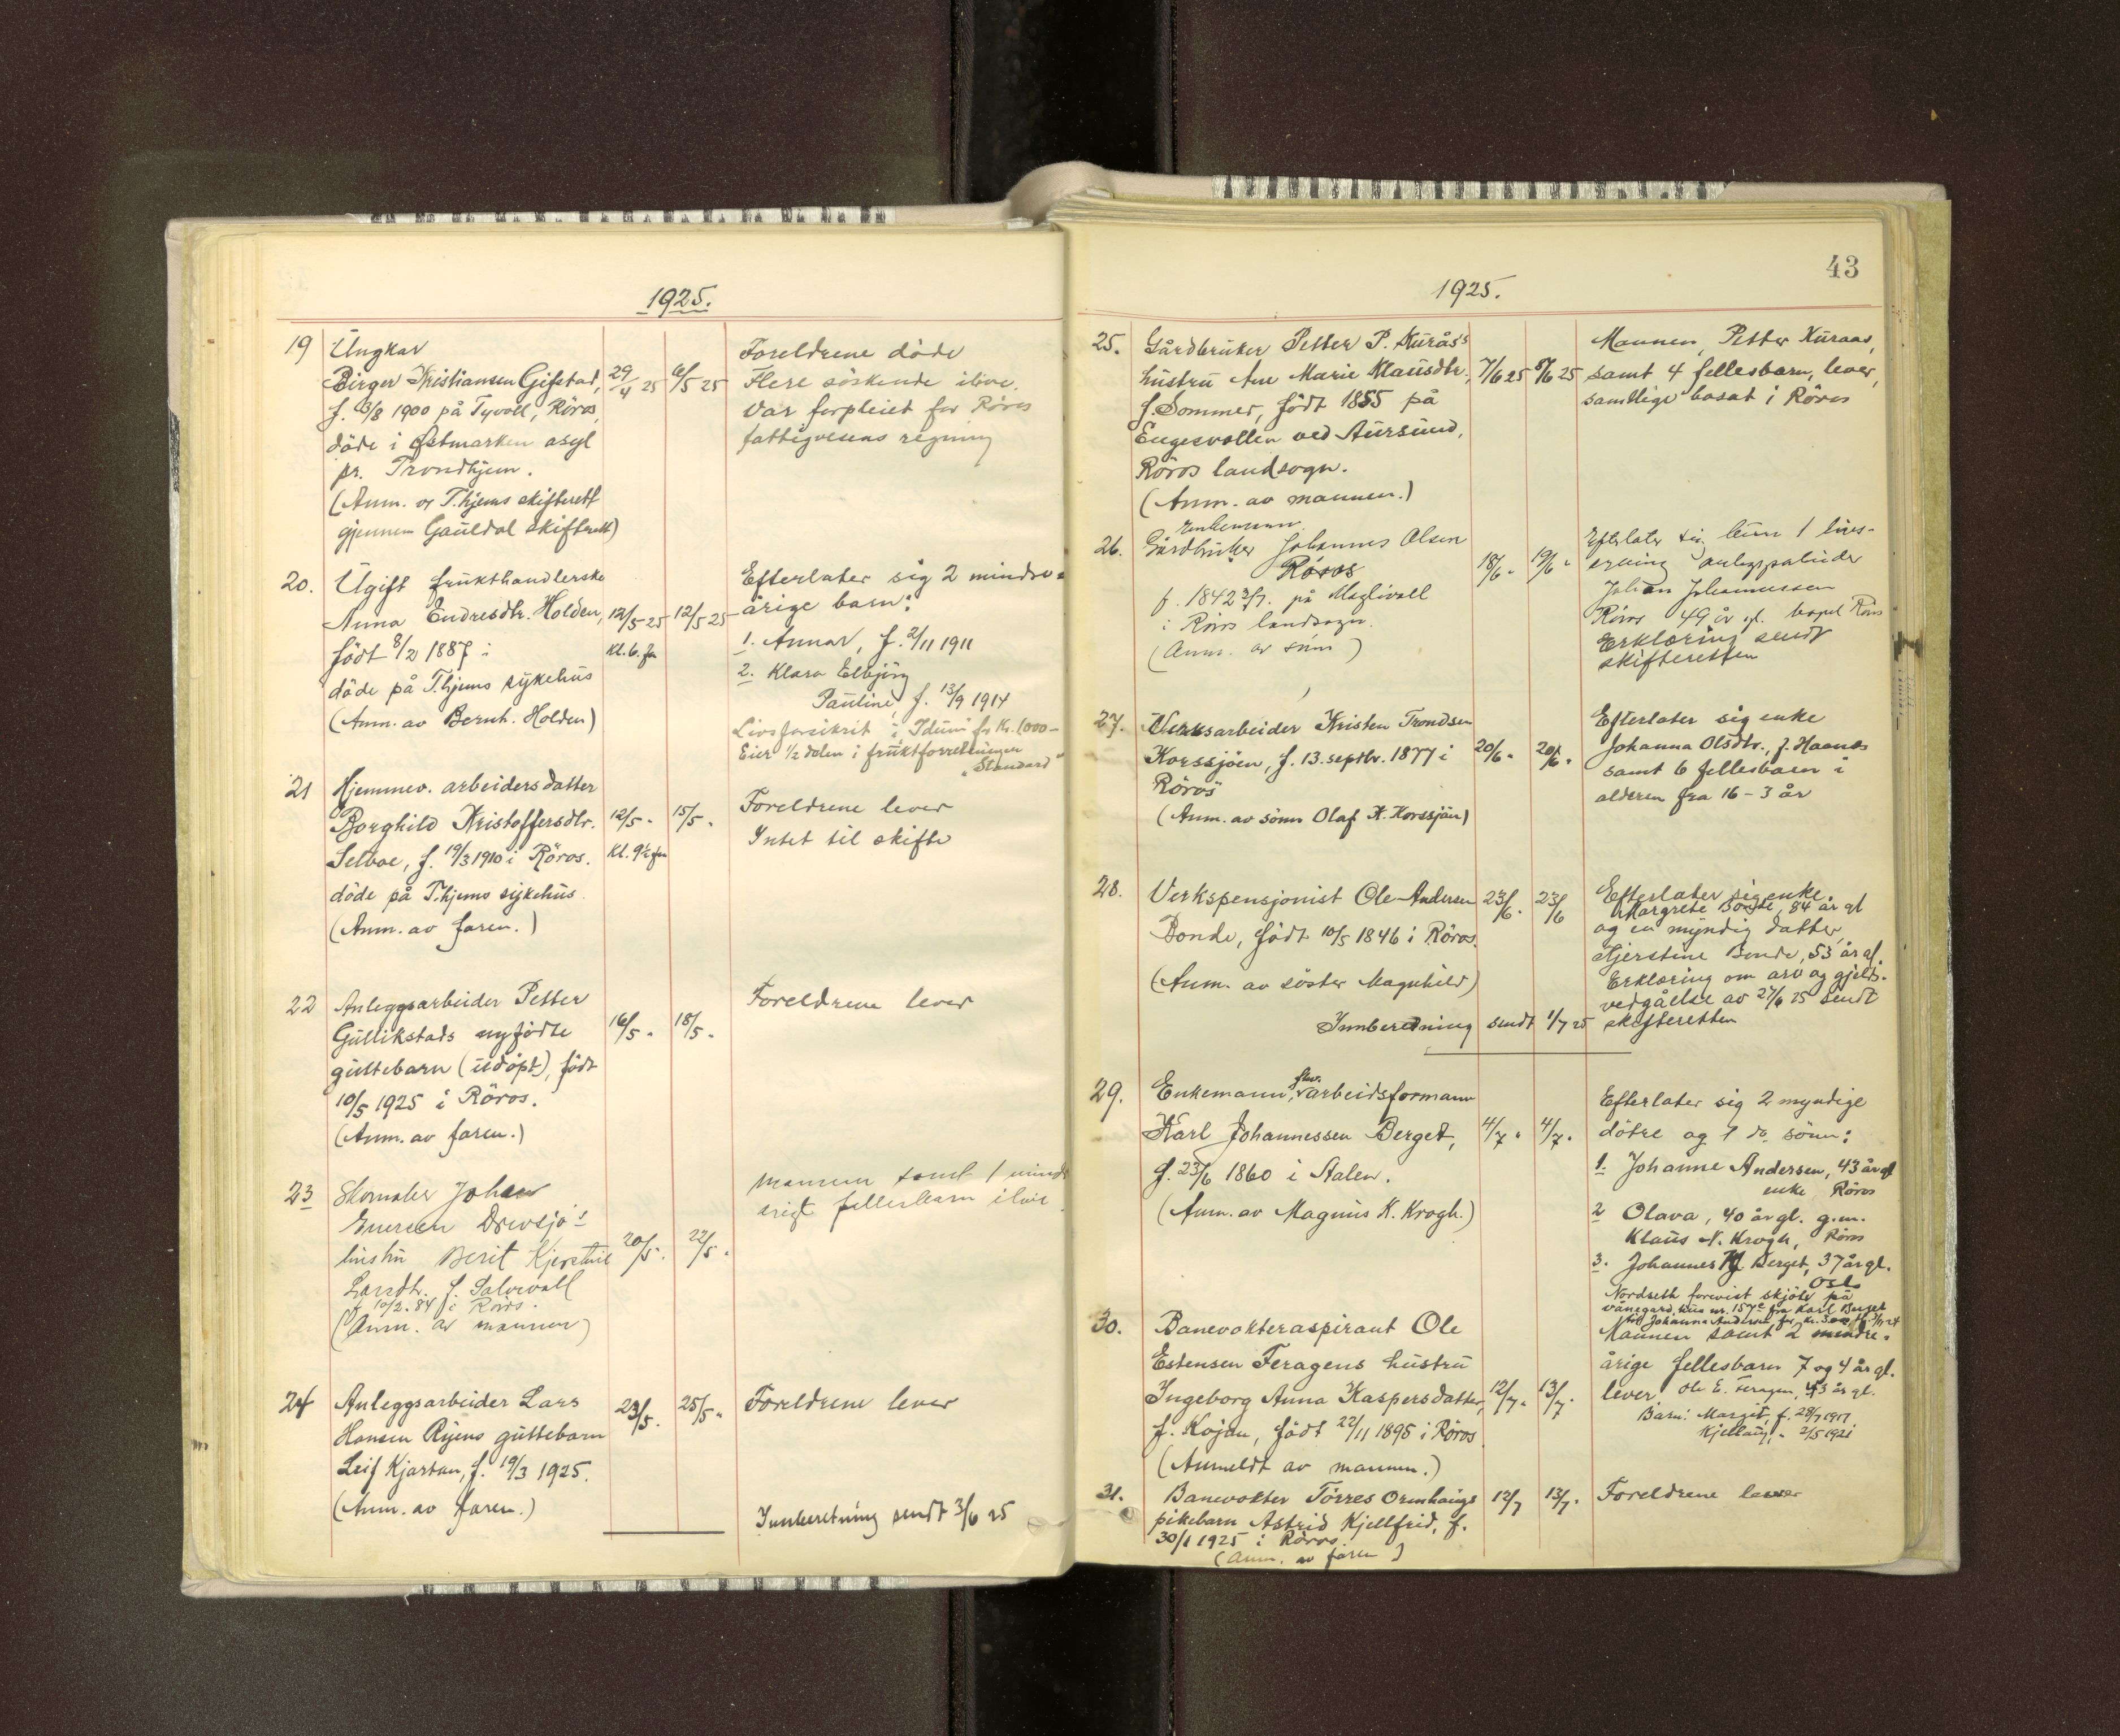 1925.
19 Ungkar
Birger Kristiansen Gifstad, 29/4 25 6/5 25
f. 3/8 1900 på Tyvoll, Röros,
döde i Østmarken asyl
pr. Trondhjem.
(Anm. av T.hjems skifterett
gjennem Gauldal skifterett)
Foreldrene döde
Flere söskende ilive.
Var forpleiet for Röros
fattigvesens regning
20. Ugift frukthandlerske
Anna Endresdtr. Holden, 12/5 25 12/5 25
født 8/2 1887 i
kl. 6. fm
döde på T.hjems sykehus
(Anm. av Bernh. Holden)
Efterlater sig 2 mindre-
årige barn:
1. Annar, f. 2/11 1911
2. Klara Elbjörg
Pauline f. 13/9 1914
Livsforsikret i "Idun" for Kr. 1000-
Eier 1/2 delen i fruktforretningen
"Standard"
21 Hjemmev. arbeiders datter
Borghild Kristoffersdtr. 12/5 - 15/5 -
Selboe, f. 19/3 1910 i Röros. Kl. 9 1/2 fm
döde på T.hjems sykehus.
(Anm. av faren.)
Foreldrene lever
Intet til skifte
22 Anleggsarbeider Petter
Gullikstads nyfödte 16/5 - 18/5 -
guttebarn (udöpt), födt
10/5 1925 i Röros.
(Anm. av faren.)
Foreldrene lever
23 Skomaker Johan
Enersen Drevsjö's
hustru Berit Kjerstine 20/5 - 22/5 -
Larsdtr. f. Salvevoll
f 10/2. 84 i Röros.
(Anm. av mannen)
Mannen samt 1 mindre
årigt fellesbarn ilive
24 Anleggsarbeider Lars
Hansen Ryens guttebarn 23/5 - 25/5 -
Leif Kjartan, f. 19/3 1925.
(Anm. av faren.)
Foreldrene lever
Innberetning sendt 3/6 25
43
1925.
25. Gårdbruker Petter P. Kurås's
hustru Ane Marie Klausdtr. 7/6 25 8/6 25
f. Sommer, födt 1855 på
Engesvollen ved Aursund,
Röros landsogn.
(Anm. av mannen.)
Mannen, Petter Kuraas,
samt 4 fellesbarn, lever,
samtlige bosat i Röros
Enkemann
26. Gårdbruker Johannes Olsen
Röros 18/6 - 19/6 -
f. 1842 3/7. på
i Röros landsogn.
(Anm. av sønn)
Efterlater sig kun 1 livs-
arving anleggsarbeider
Johan Johannessen
Röros 49 år gl. bopel Röros
Erklæring sendt
skifteretten
27. Verksarbeider Kristen Trondsen
Korssjöen, f. 13. septbr. 1877 i 20/6 - 20/6 -
Röros
(Anm. av sönn Olaf K. Korssjöen)
Efterlater sig enke
Johanna Olsdtr., f. Haanes
samt 6 fellesbarn i
alderen fra 16 - 3 år
28. Verkspensjonist Ole Andersen 23/6 - 23/6
Bonde, födt 10/5 1846 i Röros.
(Anm. av söster Magnhild)
Efterlater sig enke.
Margrete Bonde, 84 år gl
og en myndig datter,
Kjerstine Bonde, 53 år gl.
Erklæring om arv og gjelds-
vedgåelse av 27/6 25 sendt
Innberetning sendt 1/7 25 skifteretten
29. Enkemann, fhv. arbeidsformann
Karl Johannessen Berget, 4/7 - 4/7 -
f. 23/6 1860 i Aalen.
(Anm. av Magnus K. Krogh.)
Efterlater sig 2 myndige
dötre og 1 do. sönn:
1. Johanne Andersen, 43 år gl
enke Röros
2 Olava, 40 år gl. g.m.
Klaus N. Krogh, Röros
3. Johannes Berget, 37 år gl.
Oslo
Nordseth forevist skjöte på
hus nr. 157 c fra Karl Berget
til Johanna Andersen for kr.
30. Banevokteraspirant Ole
Estensen Feragens hustru
Ingeborg Anna Kaspersdatter, 12/7 - 13/7 -
f. Kojan, födt 22/11 1895 i Röros
(Anmeldt av mannen.)
Mannen samt 2 mindre-
årige fellesbarn 7 og 4 år gl.
lever Ole E. Feragen, 43 år gl.
Barn: Margit, f. 28/7 1917
Kjellaug, - 2/5 1921
31. Banevokter Törres Ormhaugs 12/7 13/7 -
pikebarn Astrid Kjellfrid, f.
30/1 1925 i Röros.
(Anm. av faren)
Foreldrene lever